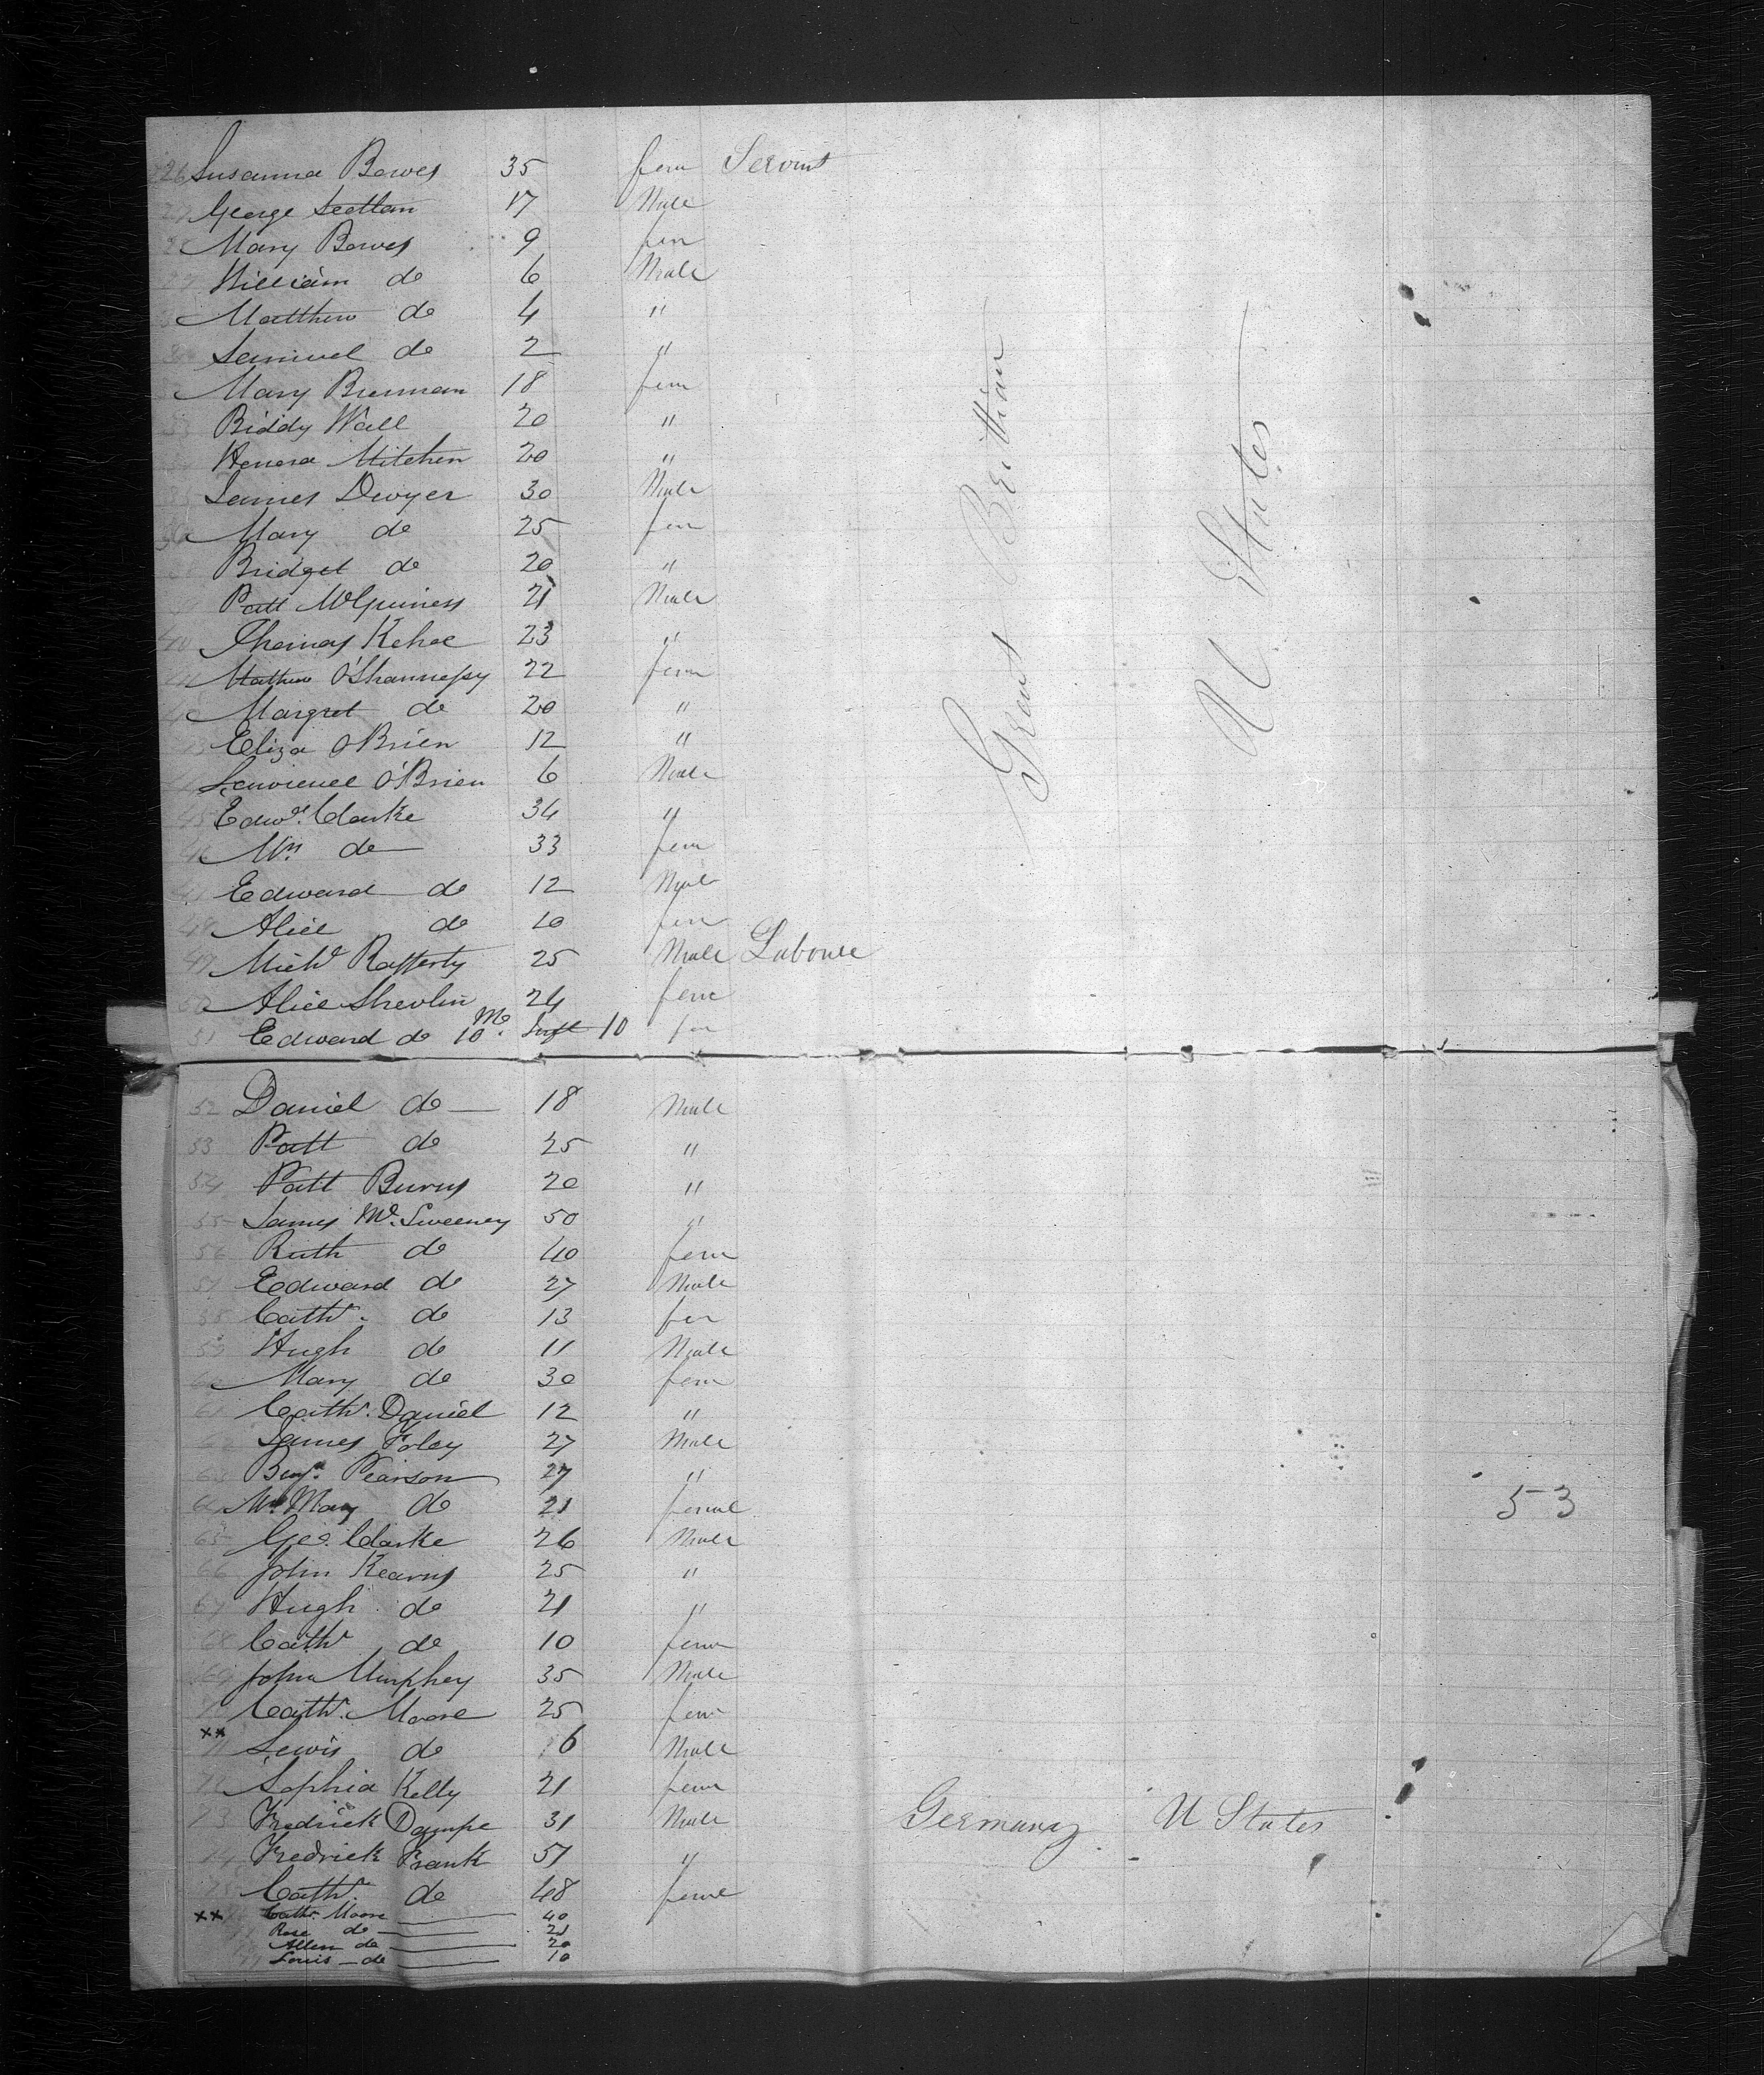 26 Susanna Bowes 35 fem Servant
George Scetton 17 Male
Mary Bowes 9 fem
William do 6 Male
Matthew do 4 "
Samuel do 2 "
Mary Brennan 18 fem
33 Biddy Wall 20 "
Honora Mitchen 20 "
James Dwyer 30 Male
36 Mary do 25 fem
Bridget do 20 "
Patt McGuiness 21 Male
40 Thomas Kehoe 23 "
Mathew O'Shannessy 22 fem
Margret do 20 "
Eliza O'Brien 12 "
Lawrence O'Brien 6 Male
45 Edwd. Clarke 34 "
46 Mrs do 33 fem
Edward do 12 Male
Alice do 10 fem
49 Michl Rafferty 25 Male Laboure
50 Alice Shevlin 24 fem
51 Edward do 10 Mo. Inft 10 fem
Great Brithian
U States
52 Daniel do 18 Male
53 Patt do 25 "
54 Patt Burns 20 "
55 James Mc. Sweeney 50 "
56 Ruth do 40 fem
57 Edward do 27 Male
Cathr. do 13 fem
59 Hugh do 11 Male
Mary do 30 fem
61 Cathr. Daniel 12 "
James Foley 27 Male
63 Benj. Pearson 27 "
Mrs Mary do 21 femal
53
65 Geo. Clarke 26 Male
66 John Kearns 25 "
67 Hugh do 21 "
68 Cathr do 10 fem
69 John Murphey 35 Male
Cathr. Moore 25 fem
xx 71 Lewis do 6 Male
72 Sophia Kelly 21 fem
73 Fredrick Dampe 31 Male Germany U States
74 Fredrick Frank 51 "
75 Cathr. do 48 feml
xx Cathr. Moore 40
Rose do 21
Allen do 20
Louis do 10